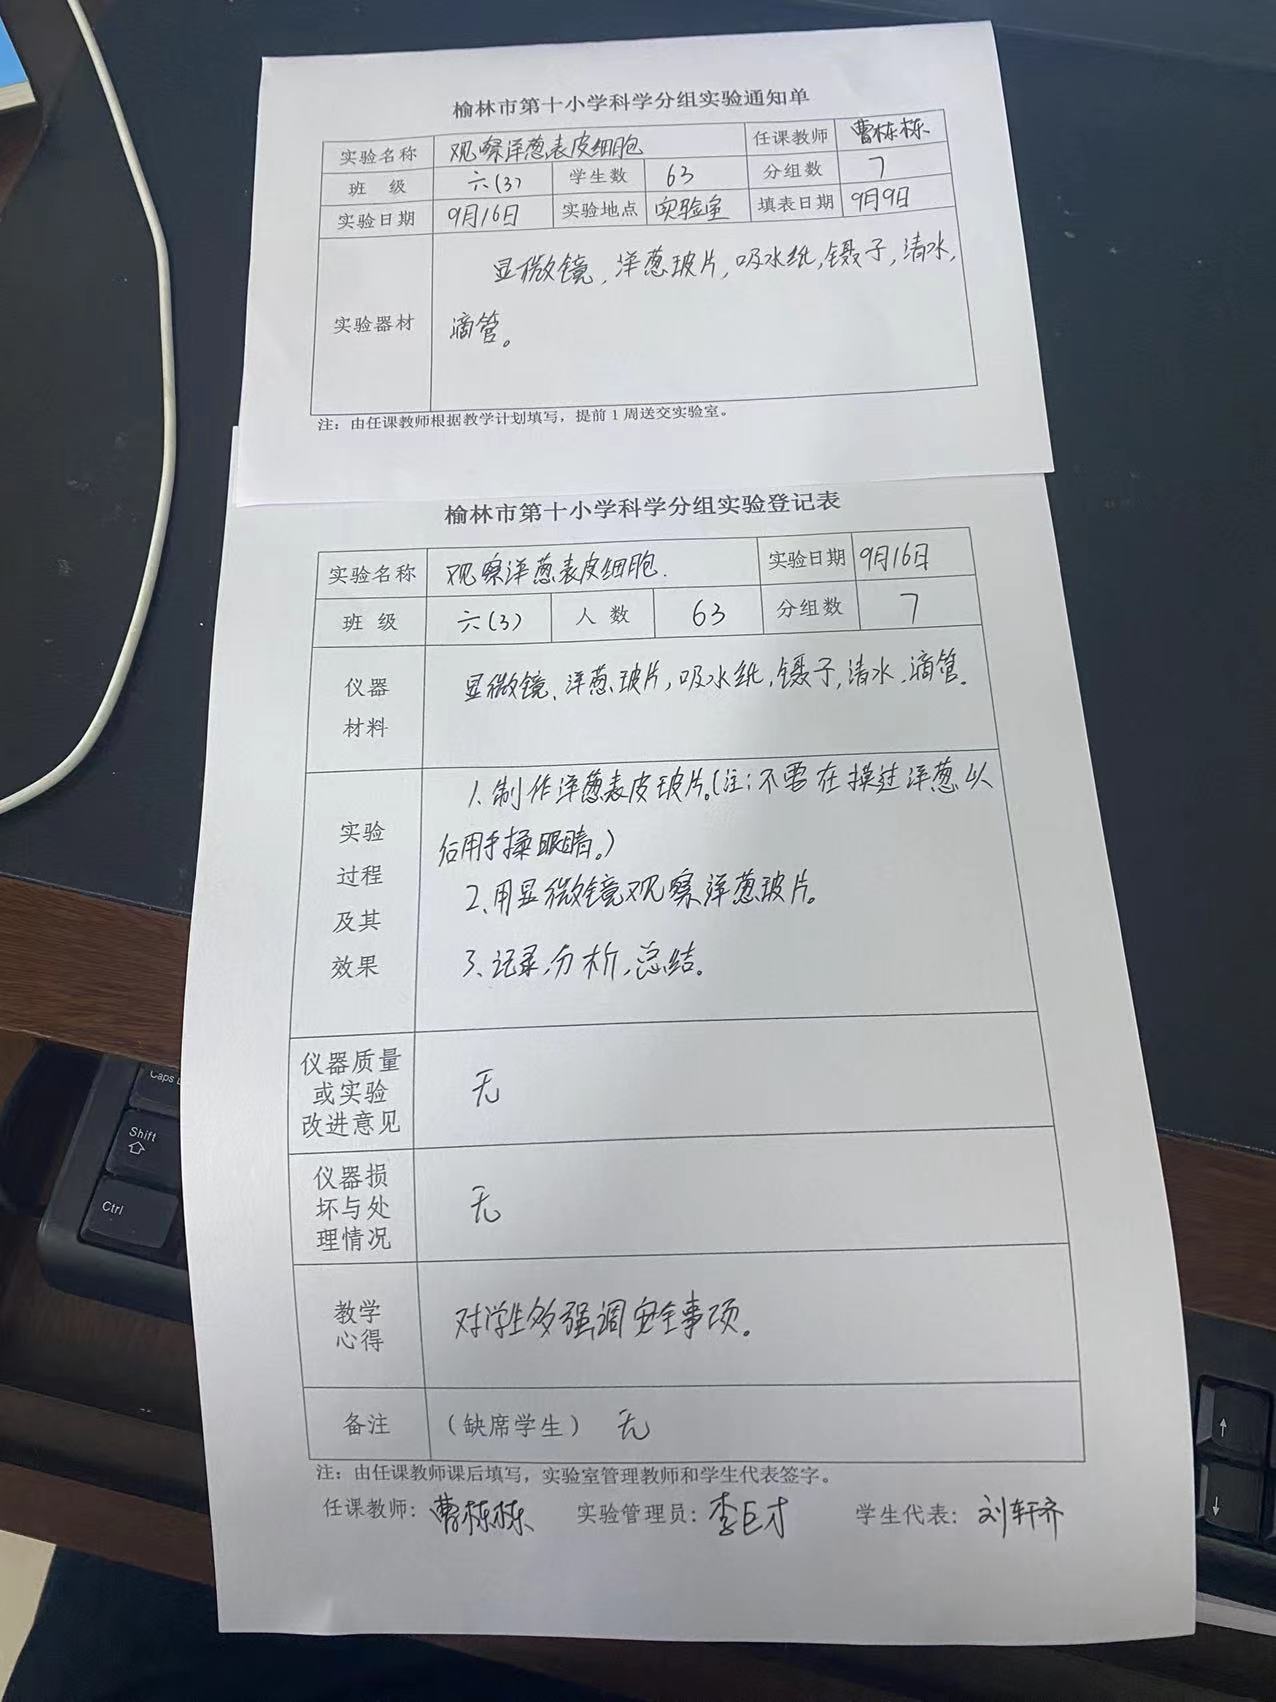 榆林市第十小学科学分组实验通知单
实验名称 观察洋葱表皮细胞 任课教师 曹栋栋
班 级 六(3) 学生数 63 分组数 7
实验日期 9月16日 实验地点 实验室 填表日期 9月9日
实验器材 显微镜,洋葱玻片,吸水纸,镊子,清水,
滴管。
注:由任课教师根据教学计划填写,提前1周送交实验室。
榆林市第十小学科学分组实验登记表
实验名称 观察洋葱表皮细胞. 实验日期 9月16日
班 级 六(3) 人 数 63 分组数 7
仪器
材料
显微镜、洋葱玻片,吸水纸,镊子,清水,滴管。
实验
过程
及其
效果
1、制作洋葱表皮玻片。(注:不要在摸过洋葱以
后用手揉眼睛。)
2、用显微镜观察洋葱玻片。
3、记录,分析,总结。
仪器质量
或实验
改进意见
无
仪器损
坏与处
理情况
无
教学
心得
对学生多强调安全事项。
备注 (缺席学生) 无
注:由任课教师课后填写,实验室管理教师和学生代表签字。
任课教师:曹栋栋 实验管理员:李巨才 学生代表:刘轩齐
Caps
Shift
Ctrl